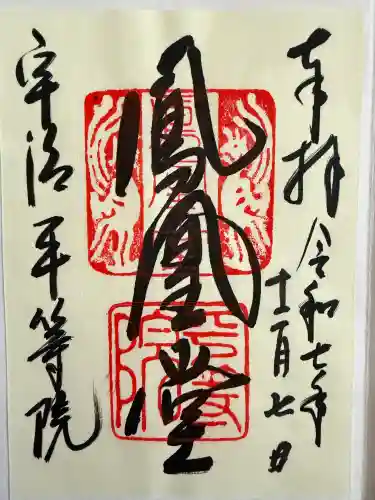 奉拝
令和七年
十二月七日
鳳凰堂
宇治 平等院